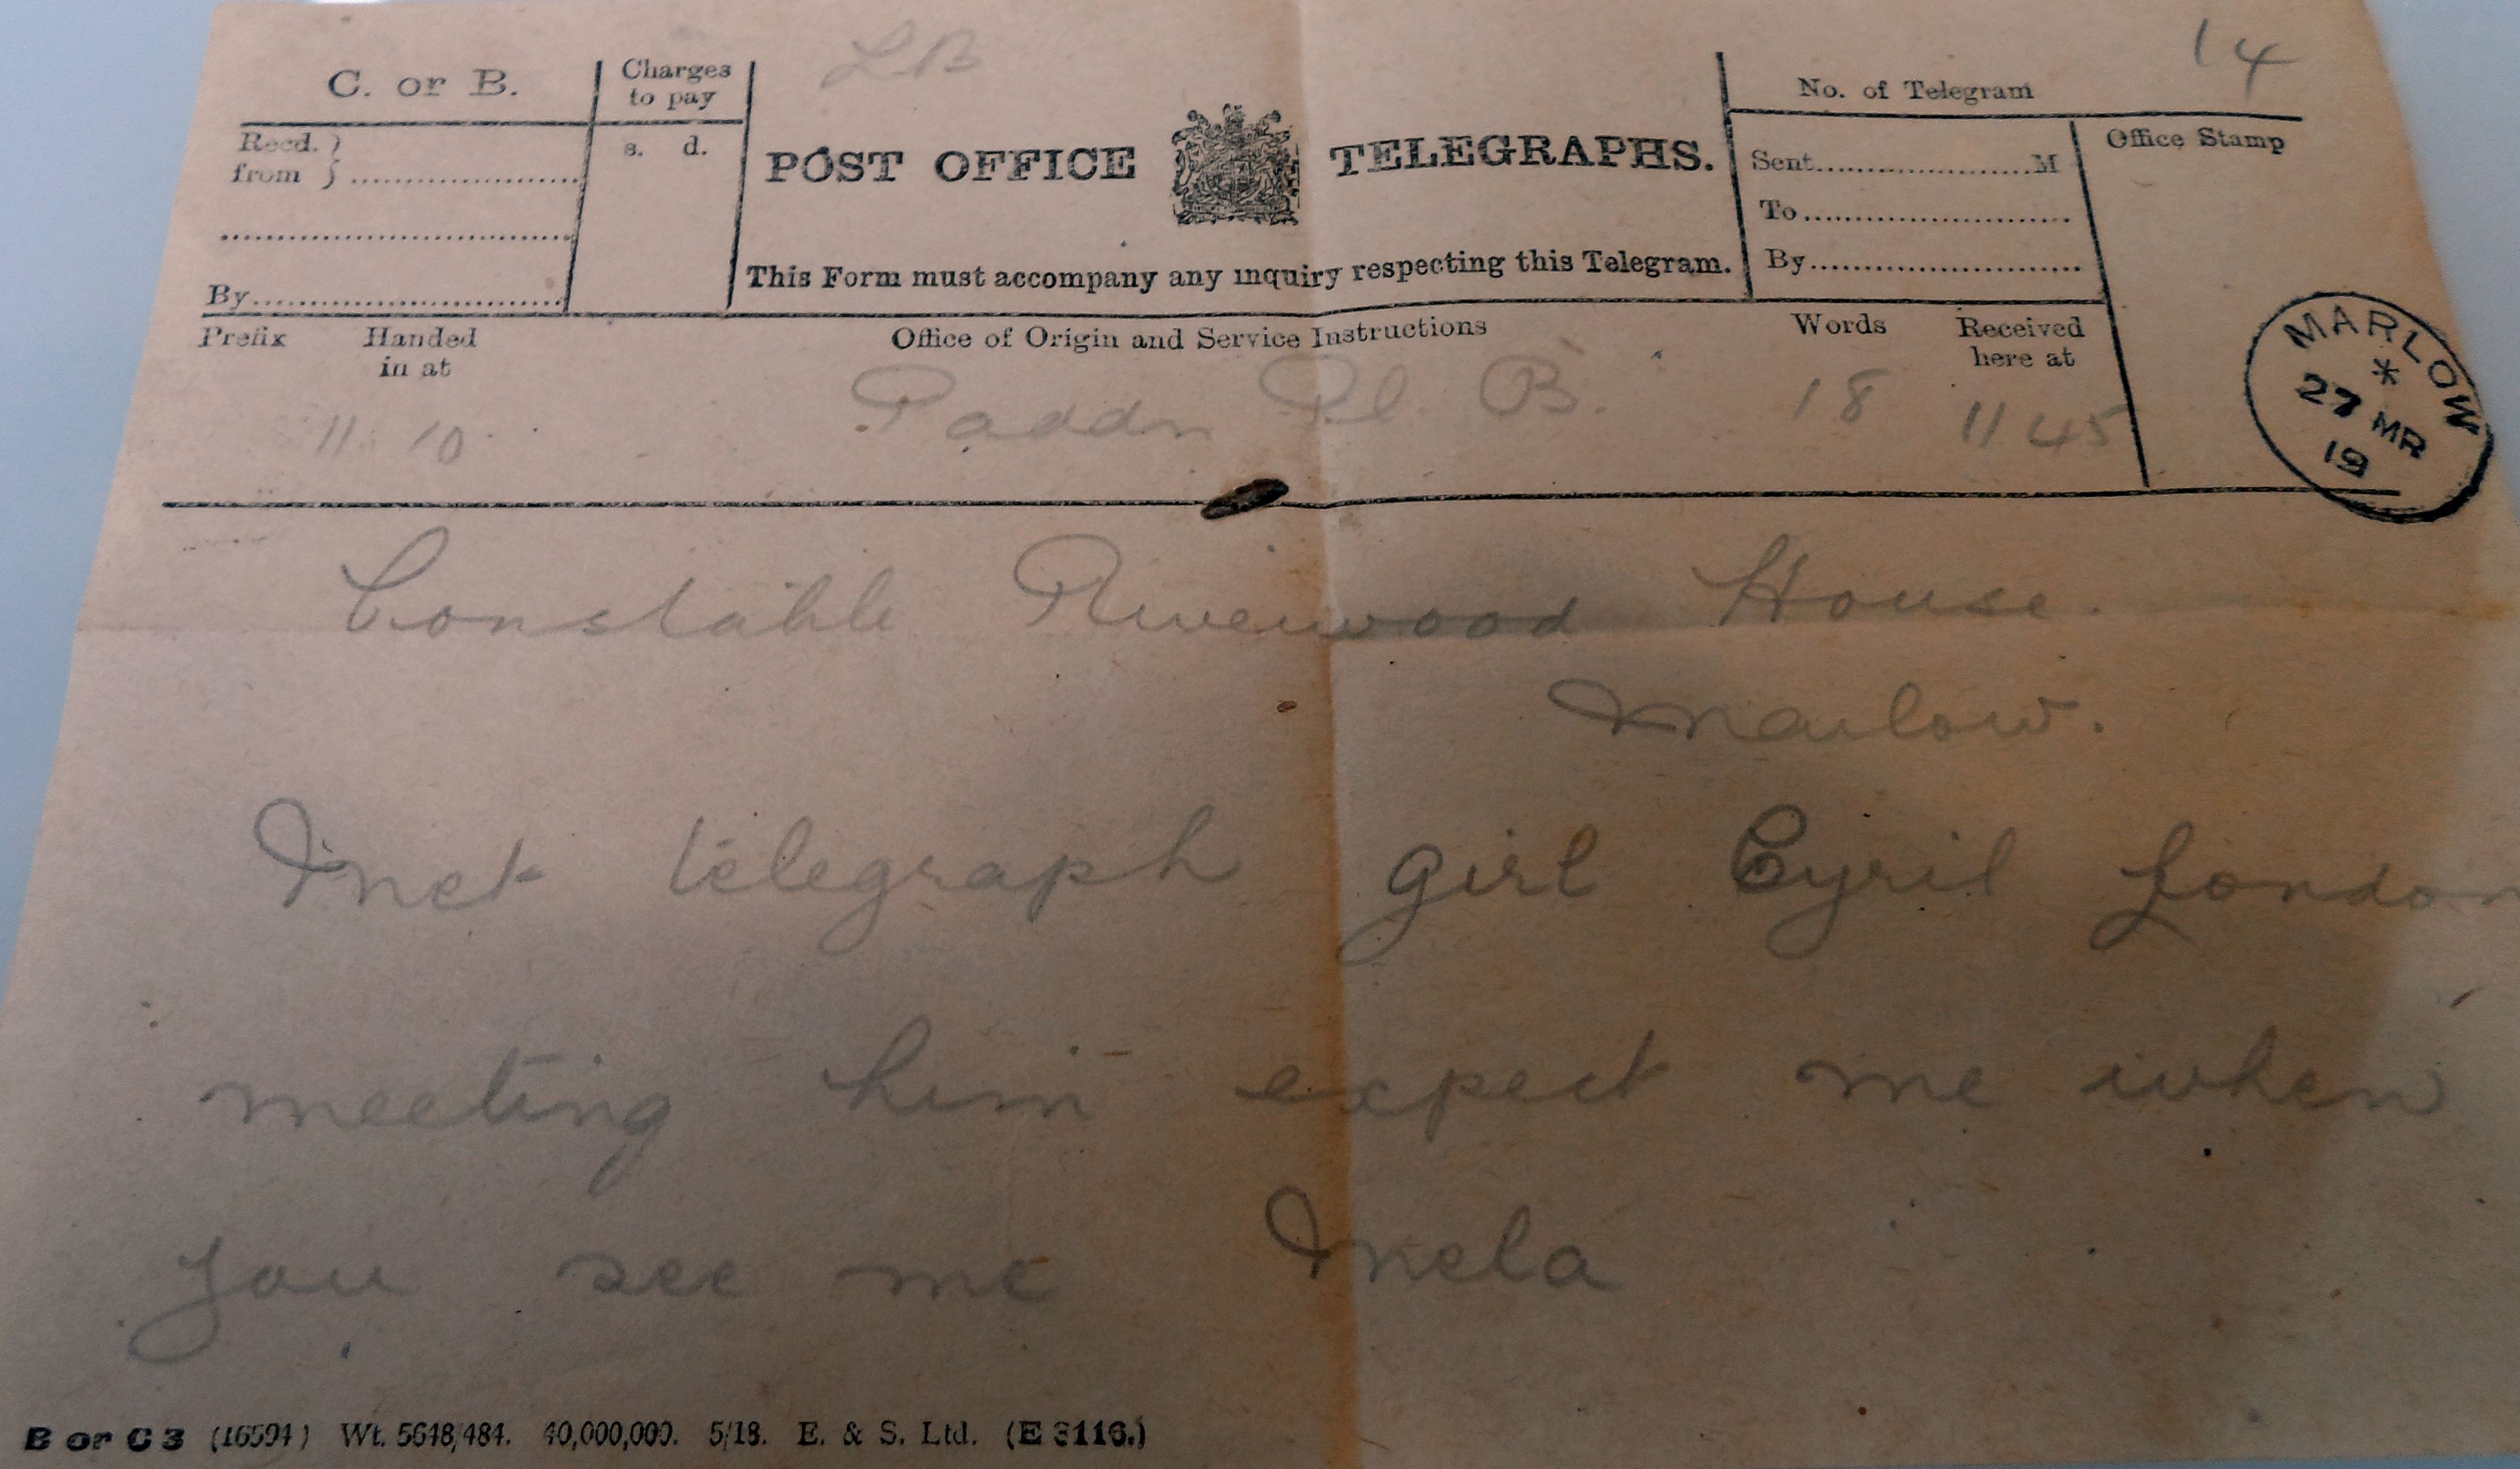 LB
14
C. or B.
Charges to pay
No. of Telegram
Recd. from
s. d.
POST OFFICE TELEGRAPHS.
Sent....................M
To
Office Stamp
By
This Form must accompany any inquiry respecting this Telegram.
By
Prefix Handed in at
Office of Origin and Service Instructions
Words Received here at
MARLOW
*
27 MR
19
11 10 Paddn Pl. B. 18 11 45
Constable Riverwood House.
Marlow.
Met telegraph girl Cyril London
meeting him expect me when
you see me Mela
B or C 3 (16594) Wt. 5648/484. 40,000,000. 5/18. E. & S. Ltd. (E 3116.)